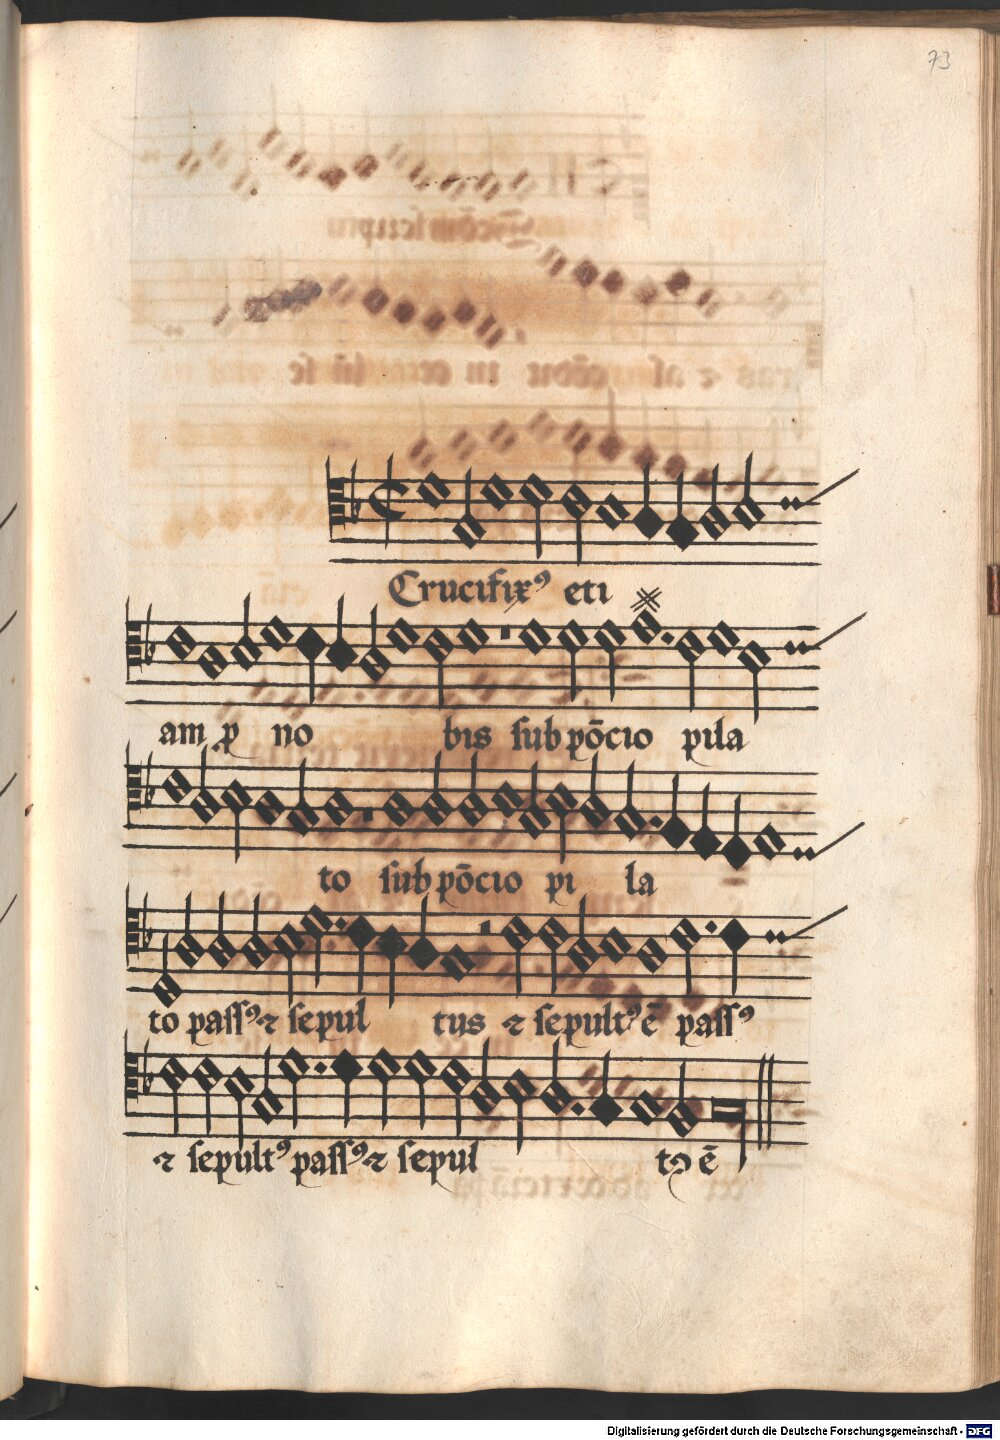 73
Crucifixꝰ eti
am ꝓ no bis sub põcio pila
to sub põcio pi la
to passꝰ ⁊ sepul tus ⁊ sepultꝰ ẽ passꝰ
⁊ sepultꝰ passꝰ ⁊ sepul tꝰ ẽ
Digitalisierung gefördert durch die Deutsche Forschungsgemeinschaft - DFG